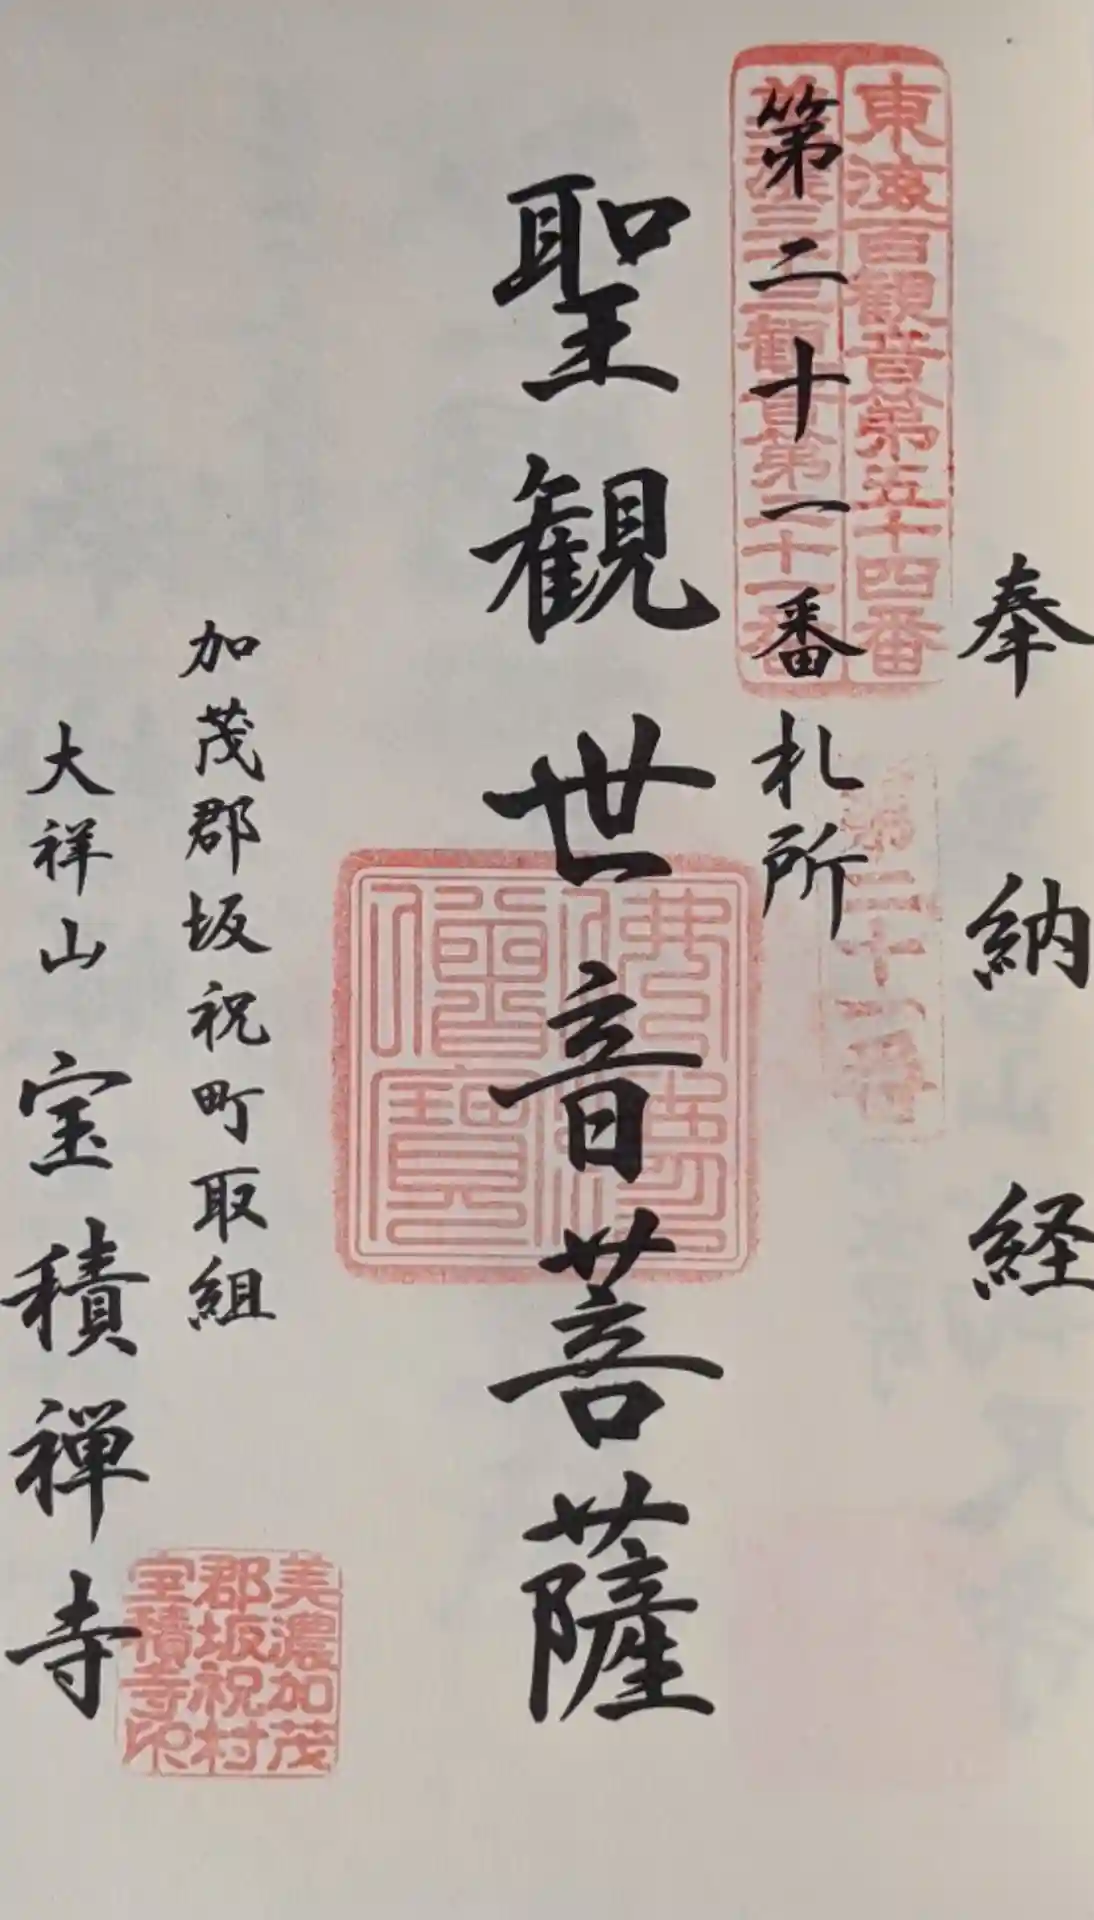 奉納経
東濃百観音第五十四番
美濃三十三観音第二十一番
第二十一番
第二十一番札所
聖観世音菩薩
佛法
僧寳
加茂郡坂祝町取組
大祥山宝積禅寺
美濃加茂
郡坂祝村
宝積寺印